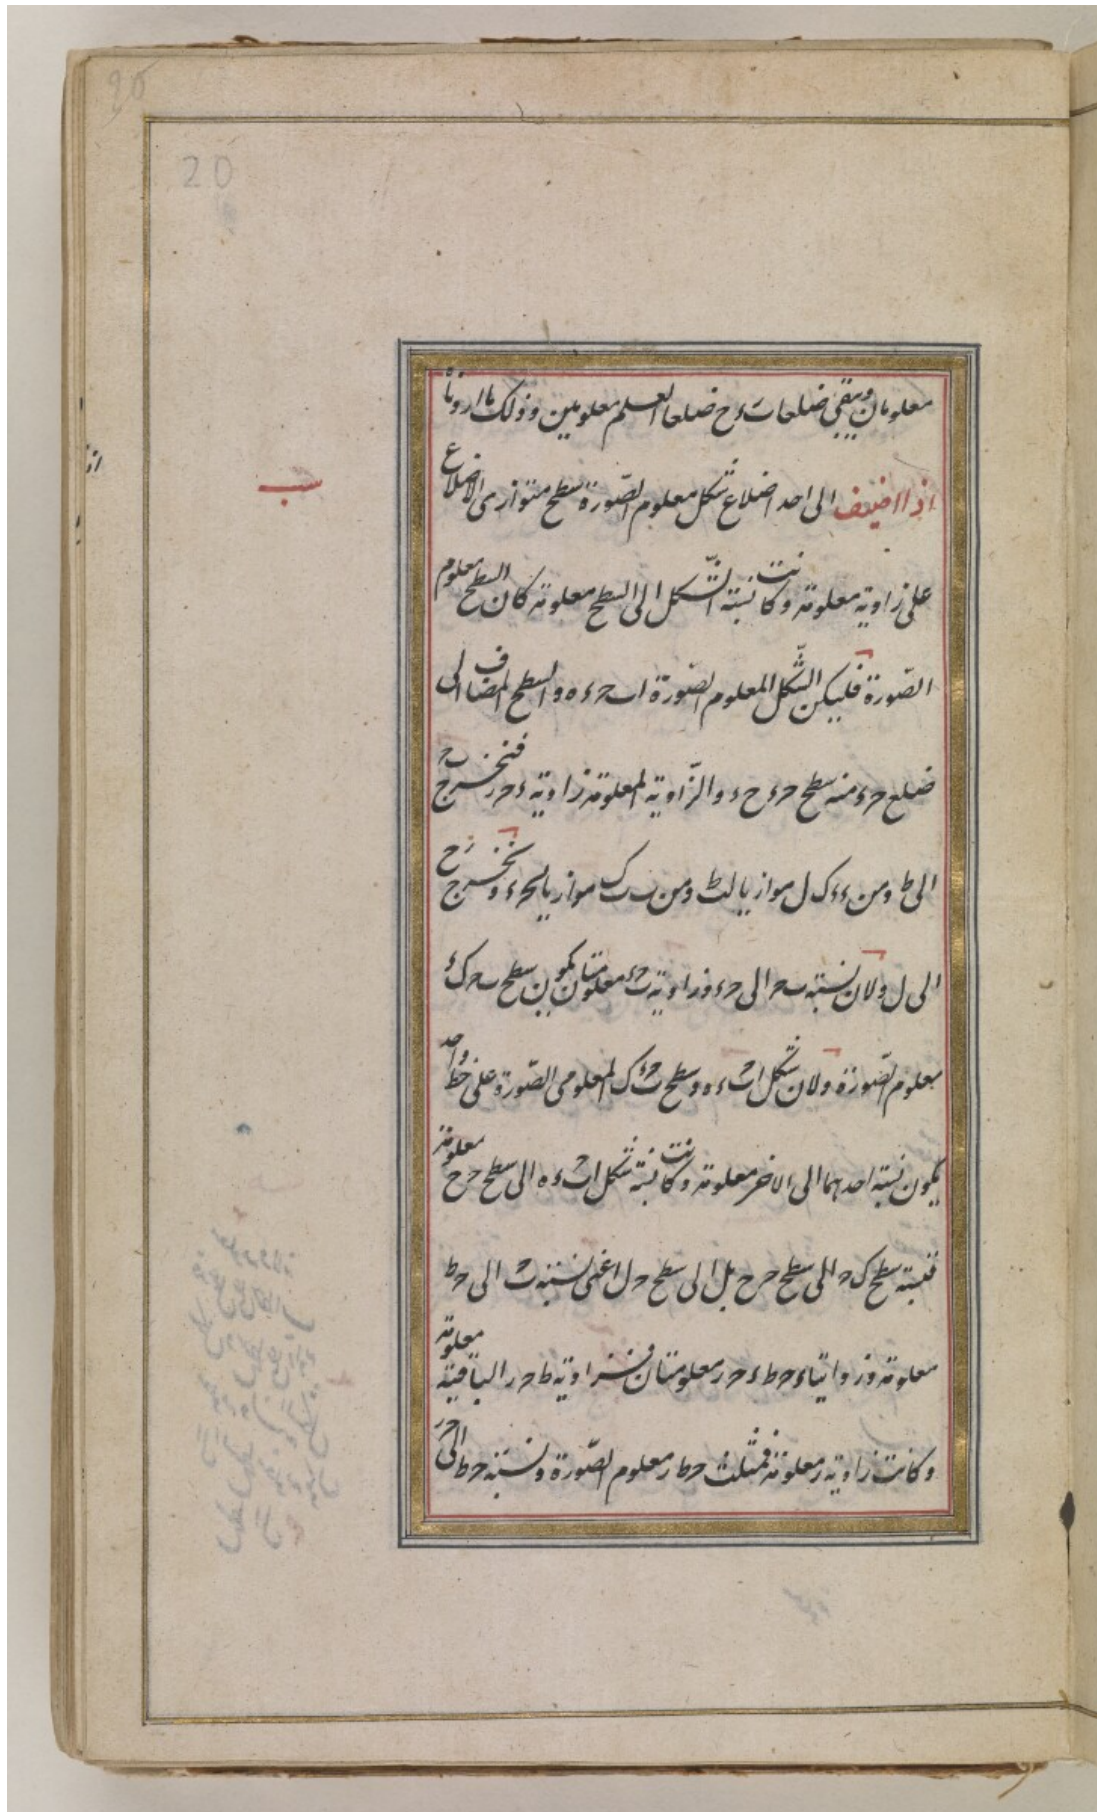 20
معلومان ويبقى ضلعا ح ضلعا العلم معلومين وذلك ما اردناه
سب
اذا اضيف الى احد اضلاع شكل معلوم الصّورة سطح متوازى الاضلاع
على زاوية معلومة وكانت نسبة الشّكل الى السطح معلومة كان السطح معلوم
الصّورة فليكن الشّكل المعلوم الصّورة اب حء ه والسطح المضاف الى
ضلع حء منه سطح حء ح ء والزّاوية المعلومة زاوية ء حر فنخرج ب ح
الى ط ومن ء ء ك ل موازيا لبط ومن ب ب ك موازيا لحء ونخرج زح
الى ل ولان نسبة ب ح الى حء وزاوية ب حء معلومتا يكون سطح ب ح ك ء
معلوم الصّورة ولان شكل اب حء ه وسطح ب حء ك المعلومى الصّورة على خط واحد
يكون نسبة احدهما الى الاخر معلومة وكانت نسبة شكل اب حء ه الى سطح ح ح معلومة
فنسبة سطح ك ح الى سطح ح ح بل الى سطح ح ل اعنى نسبة ب ح الى حط
معلومة وزوايتا ء حط ء حر معلومتان فزاوية ط حر الباقية معلومة
وكانت زاوية ر معلومة فمثلث حط ر معلوم الصّورة ونسبة حط الى حر